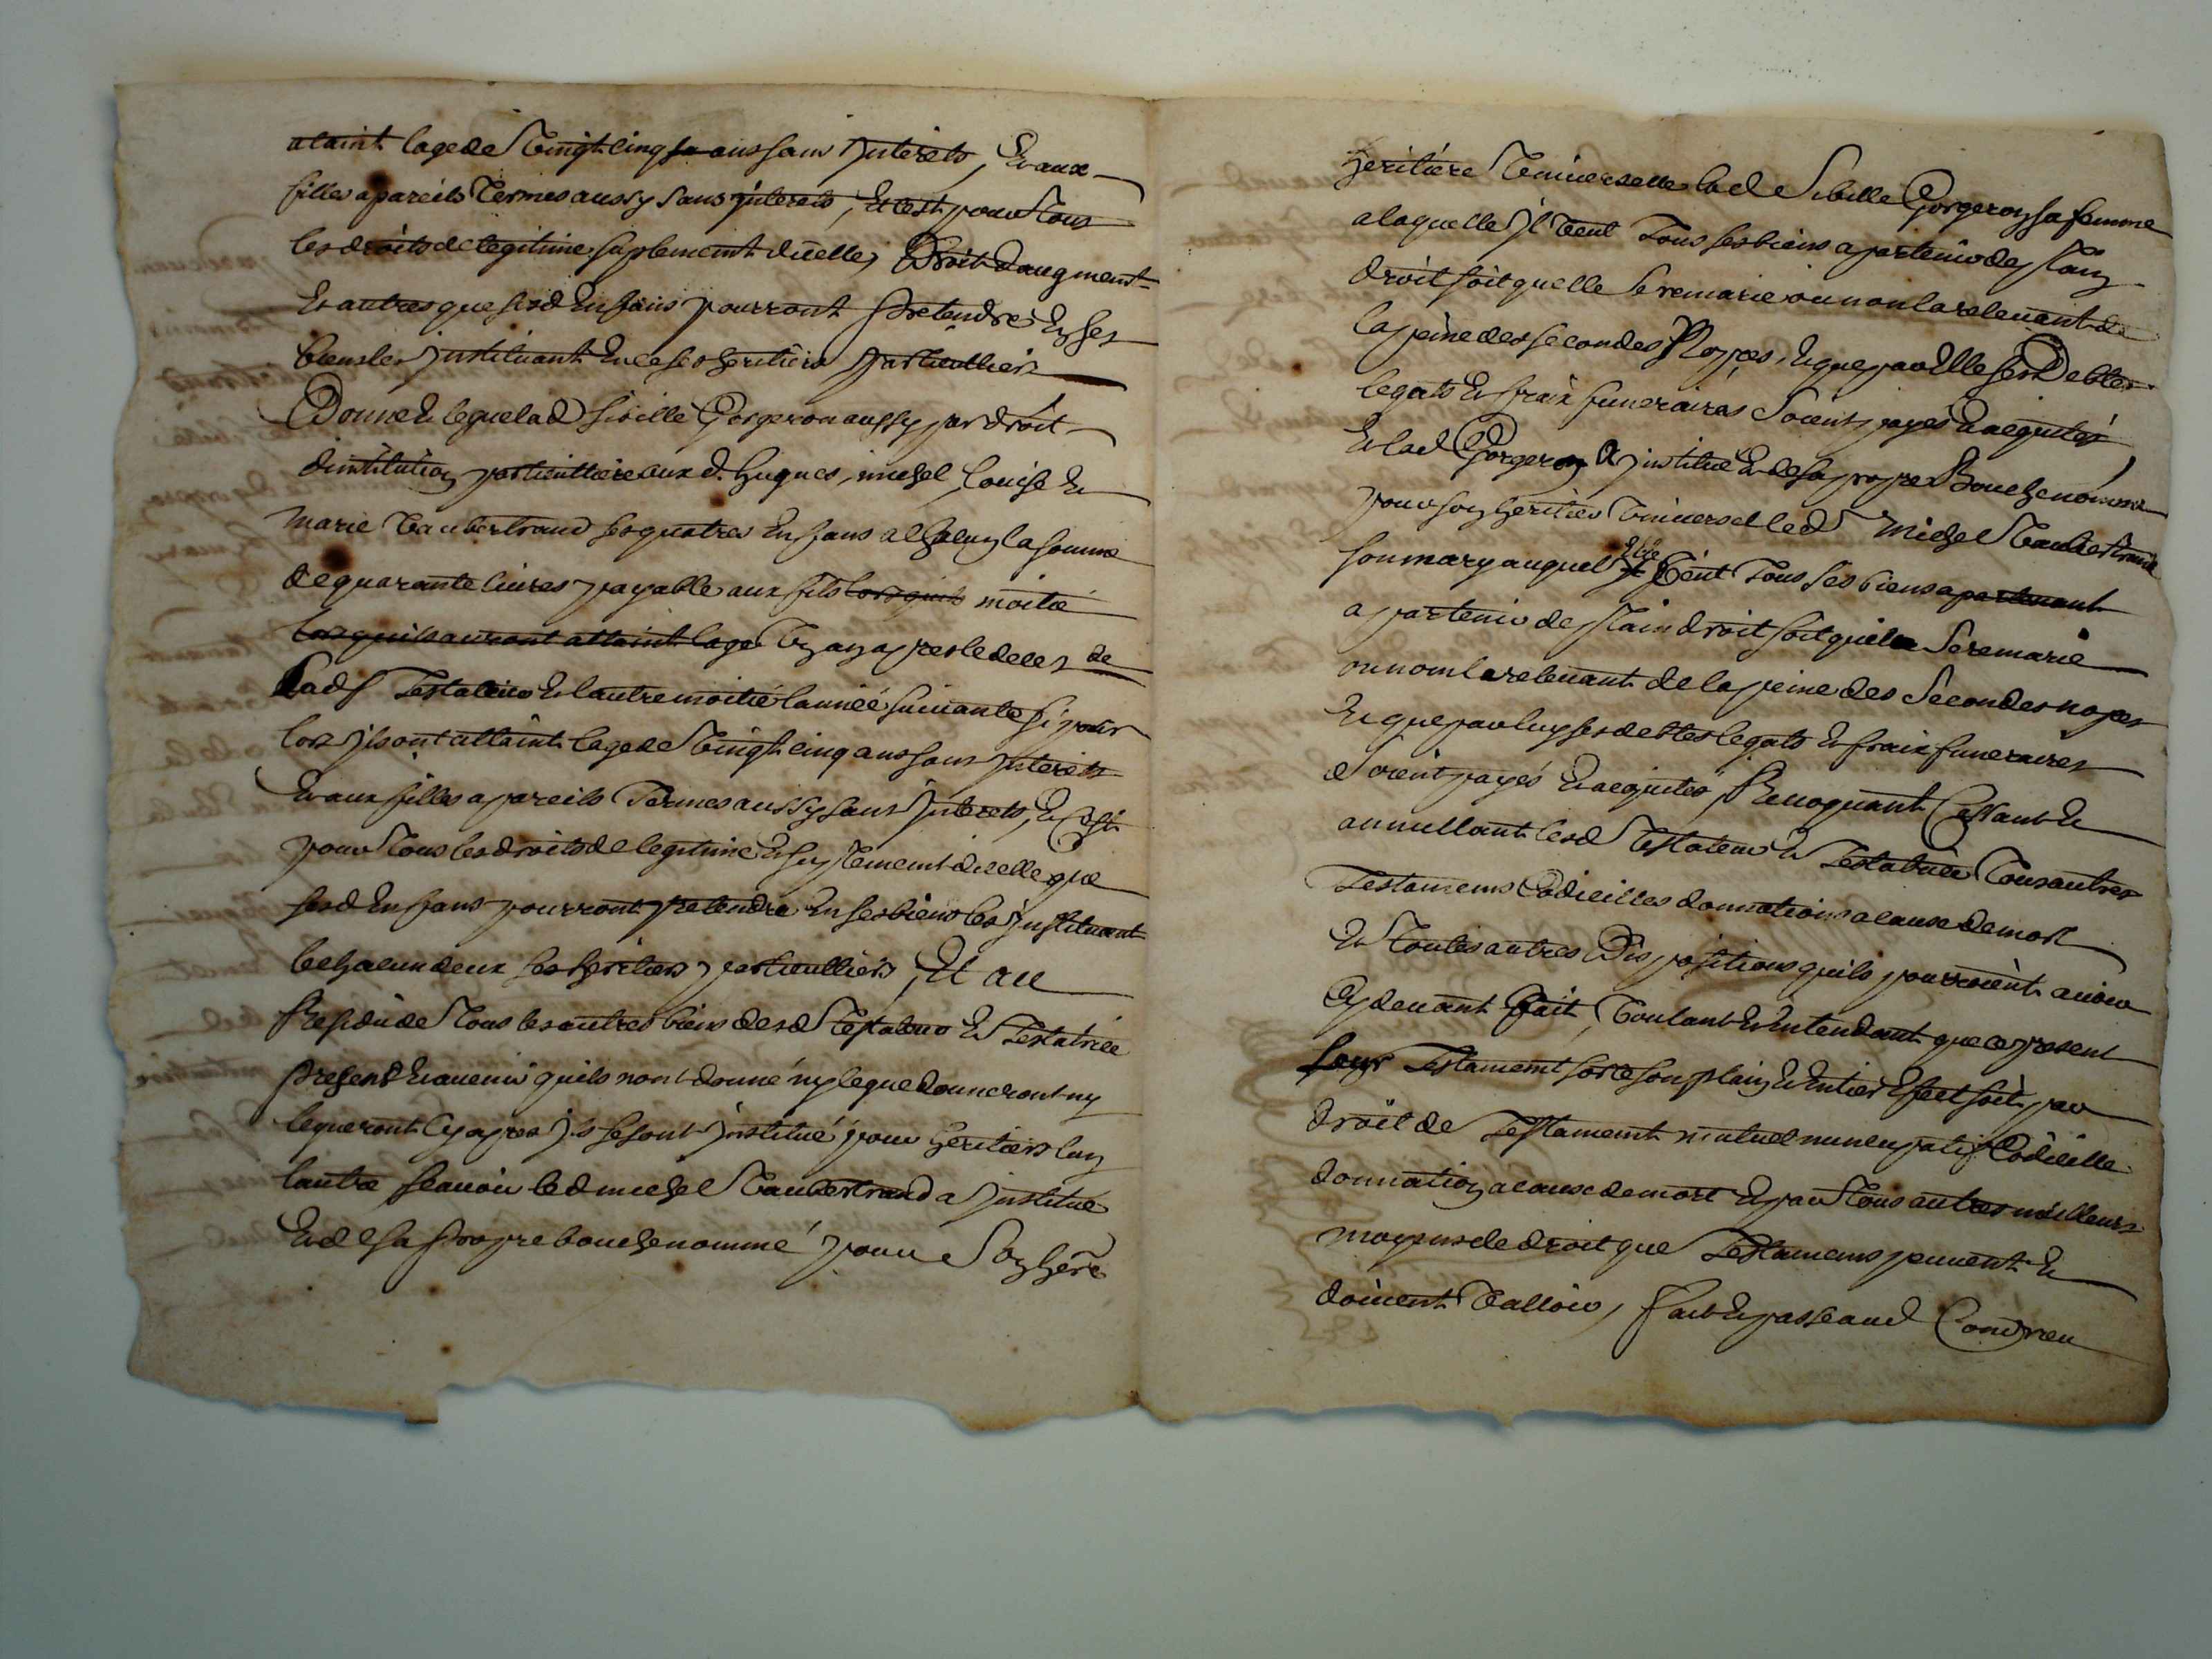 ataint lage de vingt cinq ans sans jnterets, Et aux
filles a pareils termes aussy sans jnterets, Et c'est pour tous
les droits de legitime suplement d'icelle, Droit daugment
Et autres que sesd Enfans pourront pretendre En ses
biens les jnstituant En ce ses heritiers particulliers
Donne Et legue lad sibille Gorgeron aussy par droit
dinstitution particulliere aux d. hugues, michel, Louise Et
marie Vaubertrand ses quatres Enfans a chacun la somme
de quarante livres payable aux fils lors quils moitié
lors quils auront attaint lage Un an apres le deces de
Lad Testatrice Et lautre moitié lannée suivante si pour
lors jls ont attaint lage de vingt cinq ans sans jnterets
Et aux filles a pareils Termes aussy sans jnterets, Et c'est
pour tous les droits de legitime Et suplement d'icelle que
sesd Enfans pourront pretendre En ses biens les jnstituant
Et chacun deux ses heritiers particulliers, Et au
Residu de tous les autres biens desd Testateur Et Testatrice
present Et avenir quils nont donné ny legué donneront ny
legueront cy apres jls se sont jnstitué pour heritiers lun
lautre scavoir led michel Vaubertrand a jnstitué
Et de sa propre bouche nommé pour son heri
heritiere Universelle lad Sibille Gorgeron sa femme
a laquelle jl veut Tous ses biens apartenir de plain
droit soit quelle se remarie ou non la relevant de
la peine des secondes Nopces, Et que par Elle sesd Debtes
legats Et fraix funeraires soient payés Et acquités
Et lad Gorgeron a jnstitué Et de sa propre Bouche nommé
pour son heritier Universel led Michel Vaubertrand
son mary auquel Elle veut Tous ses biens apartenant
apartenir de plain droit soit quil se remarie
ou non le relevant de la peine des Secondes nopces
Et que par luy ses debtes legats Et fraix funeraires
soient payés Et acquités, Revoquant Cassant Et
annullant lesd Testateur Et Testatrice Tous autres
Testamens Codicilles donnations a cause de mort
Et Toutes autres Dispositions quils pourroient avoir
Cy devant fait, Voulant Et Entendant que ce present
leur Testament sorte son plain Et Entier Effect soit par
droit de Testament mutuel nuncupatif Codicille
donnation a cause de mort Et par tous autres meilleurs
moyens de droit que Testamens peuvent Et
doivent valloir, Fait Et passé aud Condrieu